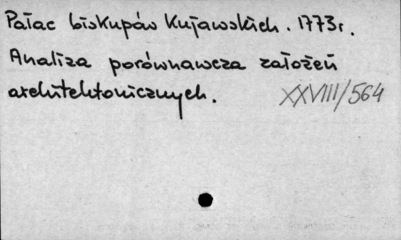 Pałac biskupów Kujawskich. 1773r.
Analiza porównawcza założeń
architektonicznych.
XXVIII/564